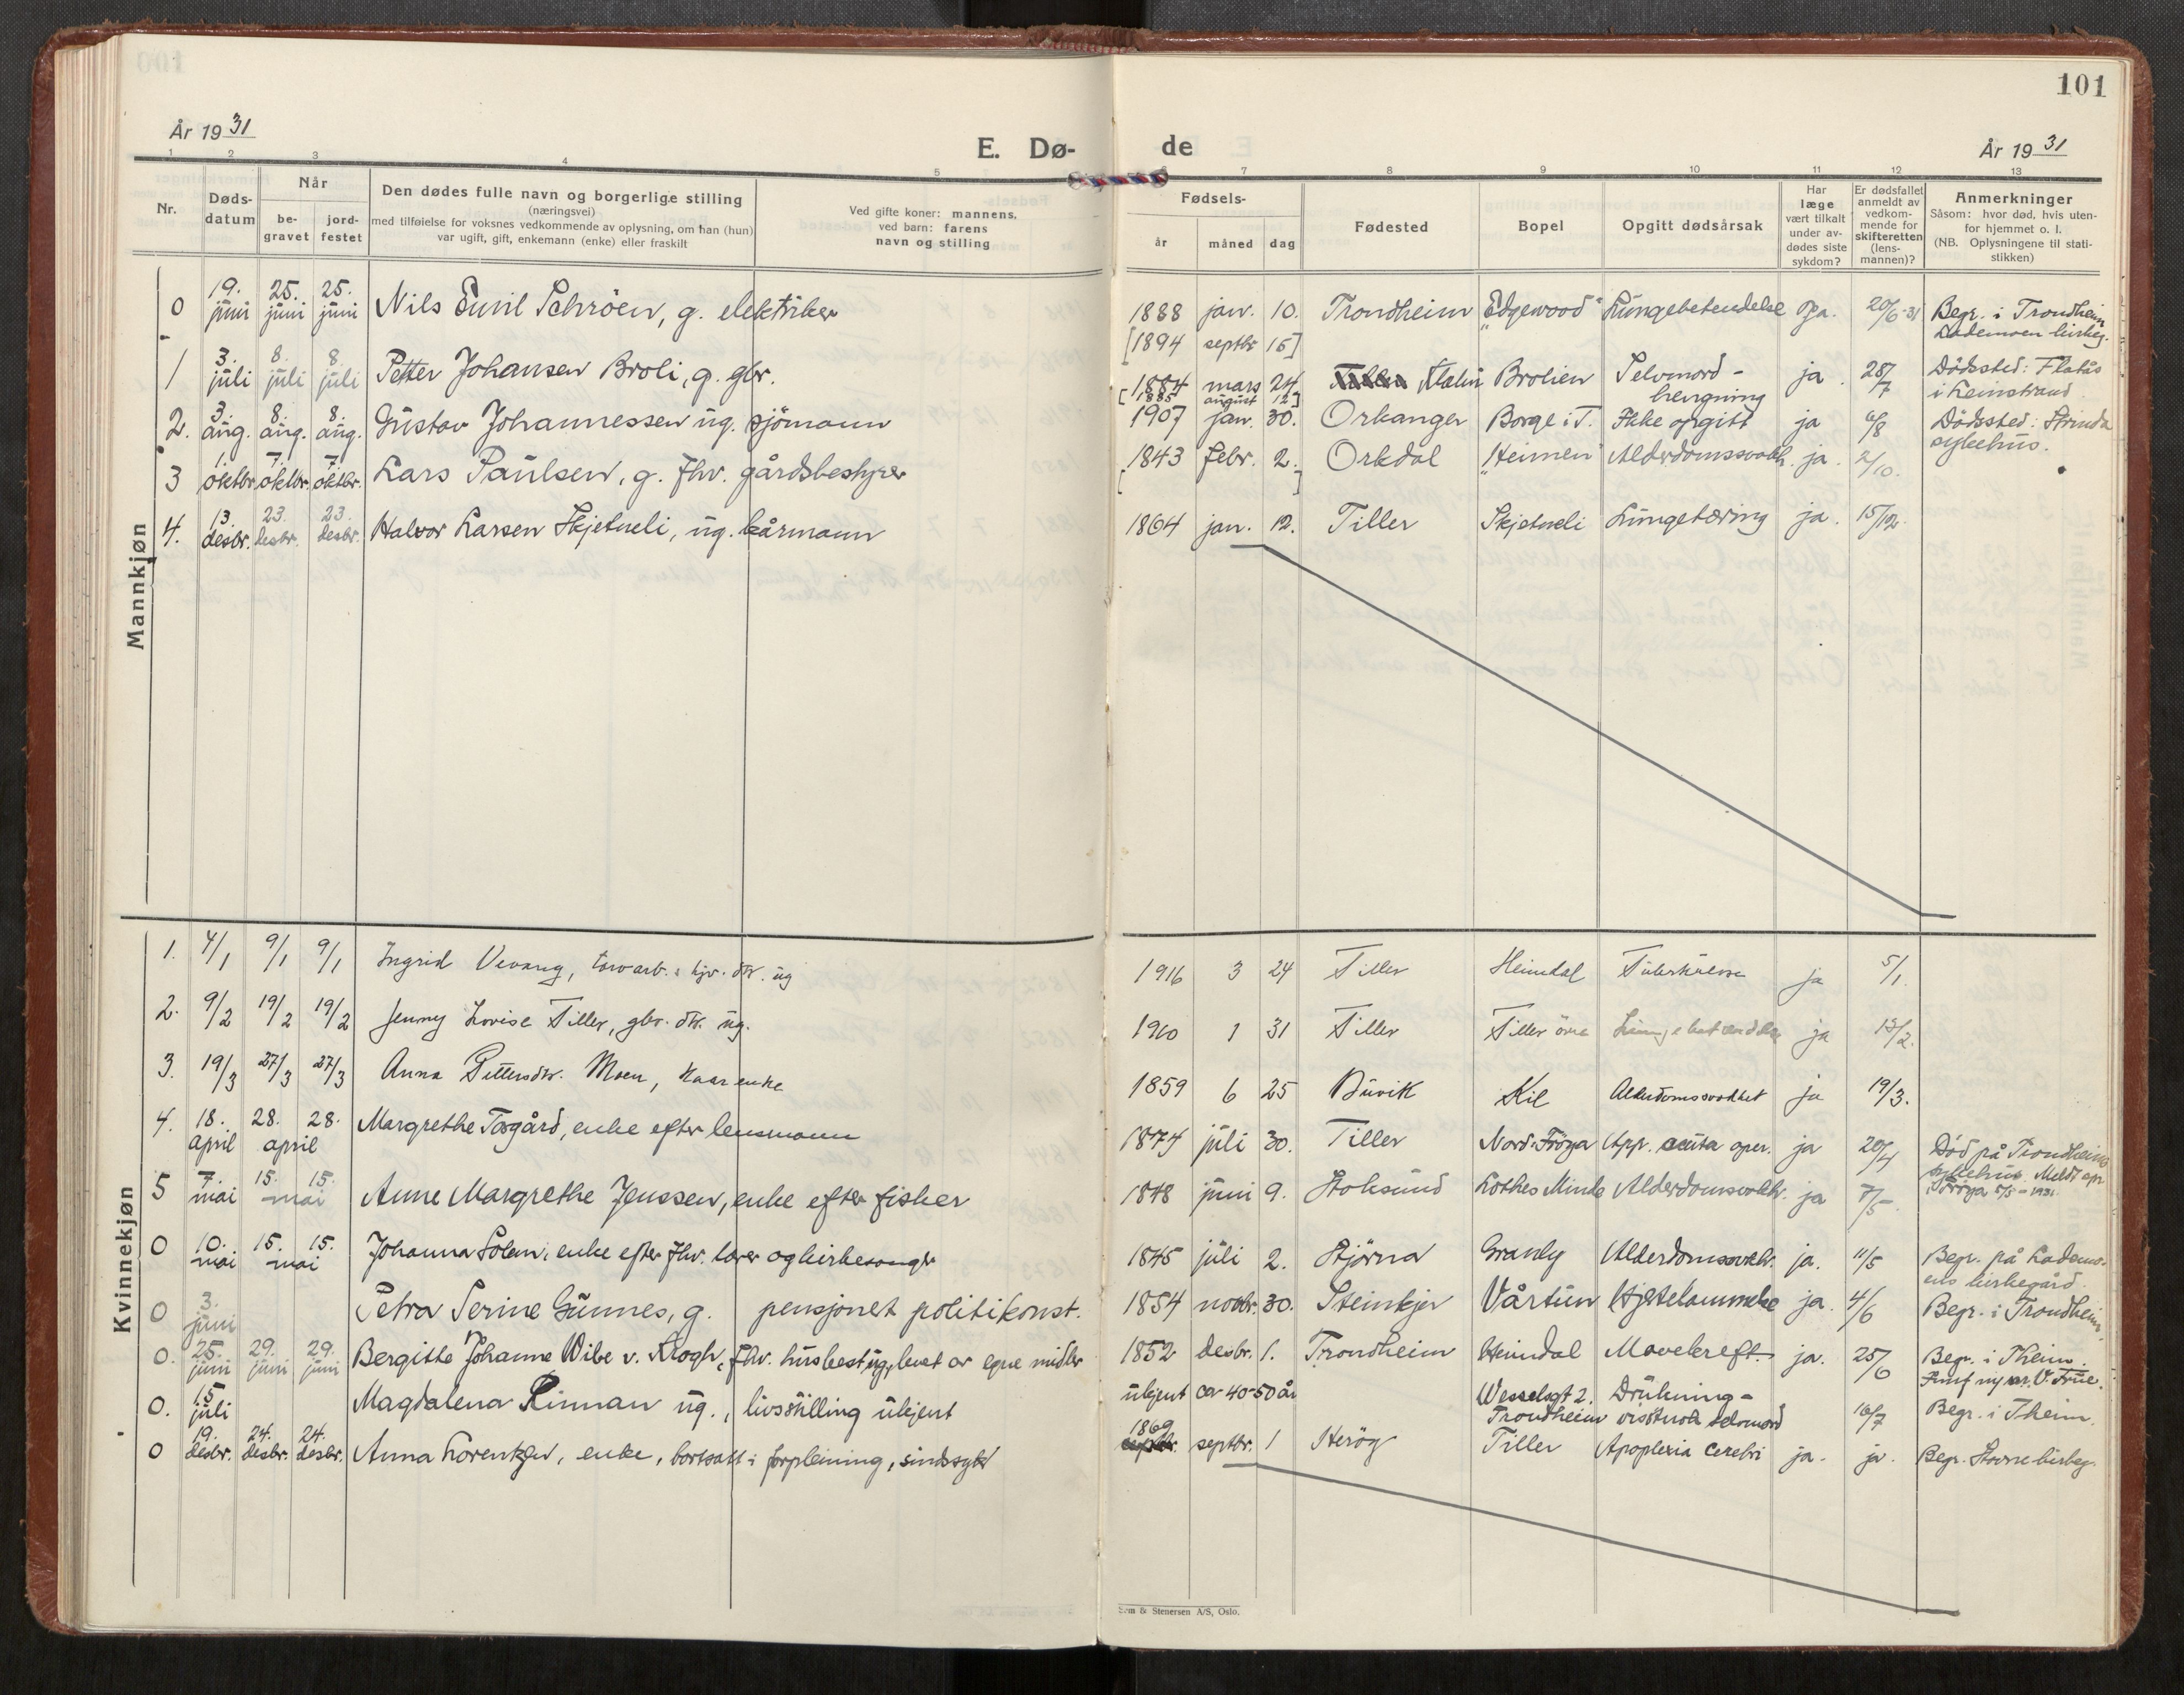 101
År 1931
E. Dø-
de
År 1931
1 2 3 4 5 6 7 8 9 10 11 12 13
Nr.
Dødsdatum
Når
begravet
jordfestet
Den dødes fulle navn og borgerlige stilling
(næringsvei)
med tilføielse for voksnes vedkommende av oplysning, om han (hun)
var ugift, gift, enkemann (enke) eller fraskilt
Ved gifte koner: mannens,
ved barn: farens
navn og stilling
Fødsels-
år måned dag
Fødested
Bopel
Opgitt dødsårsak
Har
læge
vært tilkalt
under av-
dødes siste
sykdom?
Er dødsfallet
anmeldt av
vedkom-
mende for
skifteretten
(lens-
mannen)?
Anmerkninger
Såsom: hvor død, hvis uten-
for hjemmet o. l.
(NB. Oplysningene til stati-
stikken)
Mannkjøn
0 19. juni 25. juni 25. juni Nils Emil Schröen, g. elektriker 1888 jan. 10. Trondheim "Edgewood" Lungebetendelse ja. 20/6-31 Begr. i Trondheim Lademoen kirkeg.
[1894 septbr 15]
1 3. juli 8. juli 8. juli Petter Johansen Broli, g. gbr. 1884 mars 24. Brolien Selvmord - hengning ja 28/7 Dödssted: Flatås i Leinstrand
[1885 august 12]
2. 3. aug. 8. aug. 8. aug. Gustav Johannessen ug. sjömann 1907 jan. 30. Orkanger Borge i T. Ikke opgitt ja 6/8 Dödssted: Strinda sykehus.
3 1. oktbr. 7. oktbr. 7. oktbr. Lars Paulsen, g. fhv. gårdsbestyrer 1843 febr. 2. Orkdal "Heimen" Alderdomssvakh. ja. 2/10.
4. 13. desbr. 23. desbr. 23. desbr. Halvor Larsen Skjetneli, ug. kårmann 1864 jan. 12. Tiller Skjetneli Lungetæring ja. 15/12.
Kvinnekjøn
1. 4/1 9/1 9/1 Ingrid Vevang, ug 1916 3 24 Tiller Heimdal Tuberkulose ja 5/1.
2. 9/2 19/2 19/2 Jenny Lovise Tiller, gbr. dtr. ug. 1910 1 31 Tiller Tiller övre Lungebetendelse ja 13/2.
3. 19/3 27/3 27/3 Anna Pettersdtr. Moen, kaarenke 1859 6 25 Buvik Kil Alderdomssvakhet ja 19/3.
4. 18. april 28. 28. april Margrethe Torgård, enke efter lensmann 1874 juli 30. Tiller Nord-Fröya App. acuta oper. ja 20/4 Död på Trondheims sykehus. Meldt opr i Fröya 5/5-1931
5 7. mai 15. 15. mai Anne Margrethe Jenssen, enke efter fisker 1848 juni 9. Stoksund Lothes Minde Alderdomssvakh. ja 7/5-
0 10. mai 15. 15. mai Johanna Solem, enke efter fhv. lærer og kirkesanger 1845 juli 2. Stjörna Granly Alderdomssvakh. ja. 11/5 Begr. på Lademoens kirkegård.
0 3. juni Petra Serine Gunnes, g. pensjonert politikonst. 1854 novbr. 30. Steinkjer Vårtun Hjertelammelse ja. 4/6 Begr. i Trondheim.
0. 25. juni 29. juni 29. juni Bergitte Johanne Wibe v. Krogh, fhv. husbest. ug, levet av egne midler 1852 desbr. 1. Trondheim Heimdal Mavekreft. ja. 25/6 Begr. i Theim.
0. 15. juli Magdalena Rinnan ug., livsstilling ukjent ukjent ca 40-50 år Wesselsgt 2. Trondheim Drukning - selvmord 16/7 Begr. i Theim.
0 19. desbr. 24. desbr. 24. desbr. Anna Lorentzen, enke, bortsatt i forpleining, sindssyk 1869 septbr. 1 Heröy Tiller Apoplexia cerebri ja. ja. Begr. Stavne kirkeg.
Sem & Stenersen A/S, Oslo.